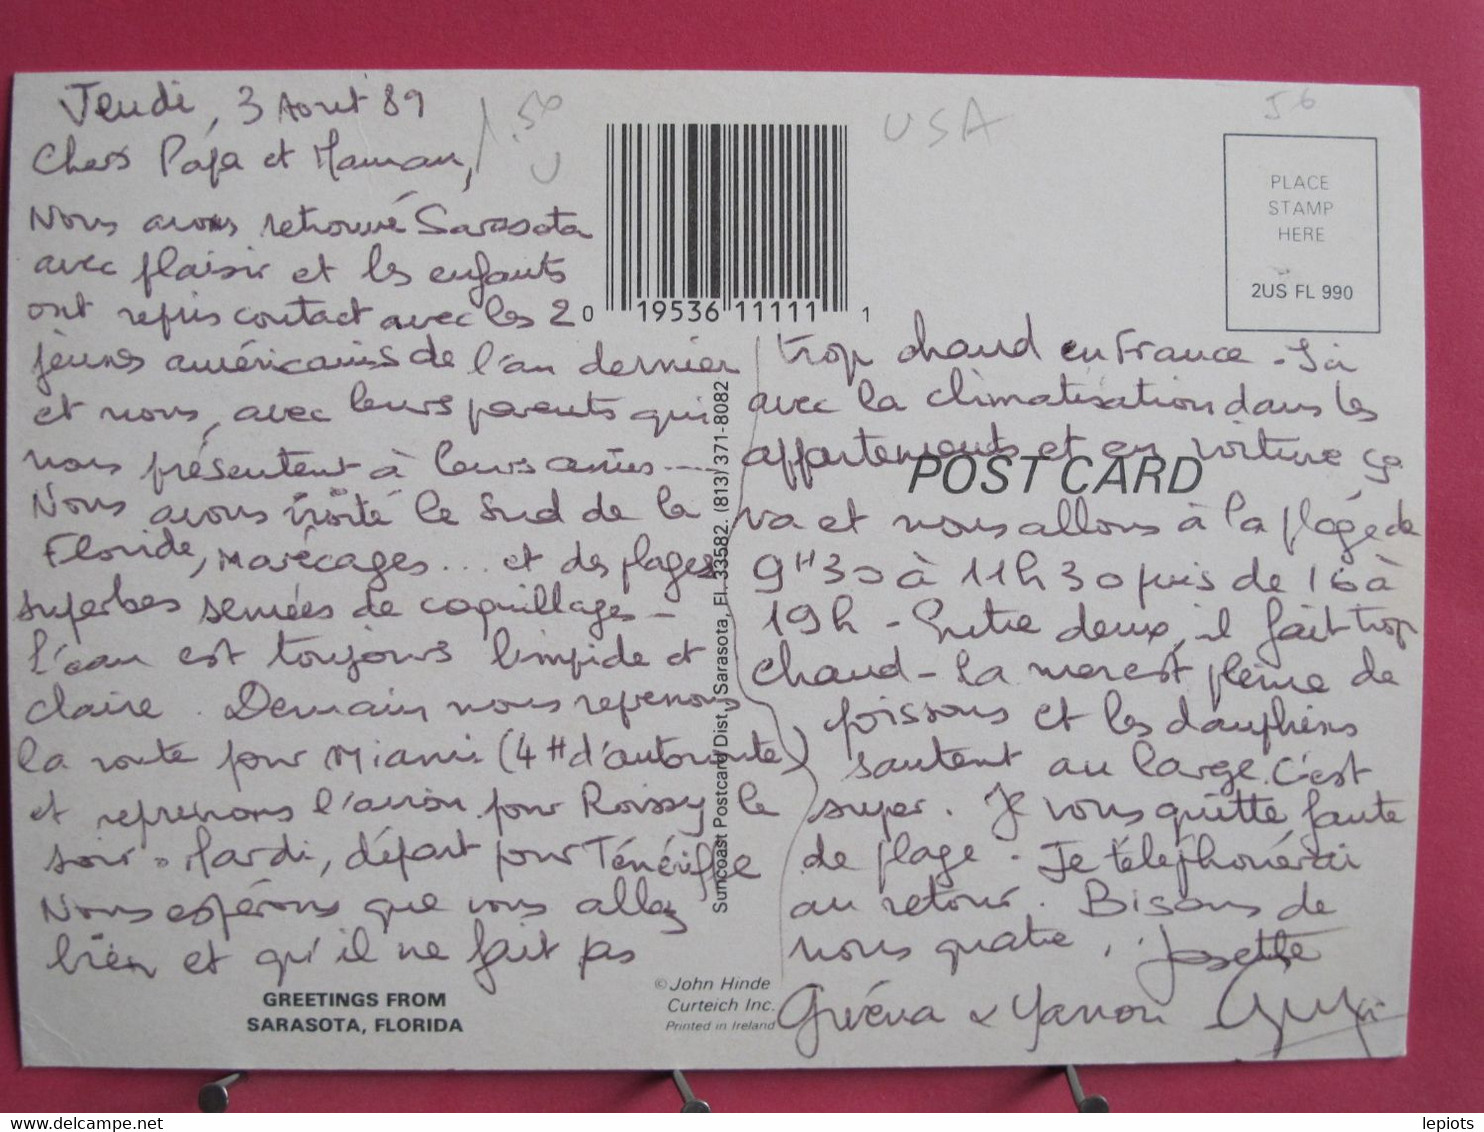 Jeudi, 3 Aout 89
Chers Papa et Maman,
1.50
U
USA
J6
Nous avons retrouvé Sarasota
avec plaisir et les enfants
ont repris contact avec les 2
jeunes américains de l'an dernier
et nous, avec leurs parents qui
nous présentent à leurs amis ----
Nous avons visité le Sud de la
Floride, marécages... et des plages
superbes semées de coquillages -
L'eau est toujours limpide et
claire. Demain nous reprenons
la route pour Miami (4H d'autoroute)
et reprenons l'avion pour Roissy le
soir. Mardi, départ pour Ténériffe
Nous espérons que vous allez
bien et qu'il ne fait pas
GREETINGS FROM
SARASOTA, FLORIDA
0 19536 11111 1
Suncoast Postcard Dist., Sarasota, Fl. 33582. (813) 371-8082
© John Hinde
Curteich Inc.
Printed in Ireland
PLACE
STAMP
HERE
2US FL 990
POST CARD
trop chaud en France - Ici
avec la climatisation dans les
appartements et en voiture ça
va et nous allons à la plage de
9H30 à 11h30 puis de 16 à
19h - Entre deux, il fait trop
chaud - la mer est pleine de
poissons et les dauphins
sautent au large. C'est
super. Je vous quitte faute
de place. Je téléphonerai
au retour. Bisous de
nous quatre. Josette
Gwéna & Yanon
lepiots
Delcampe.net